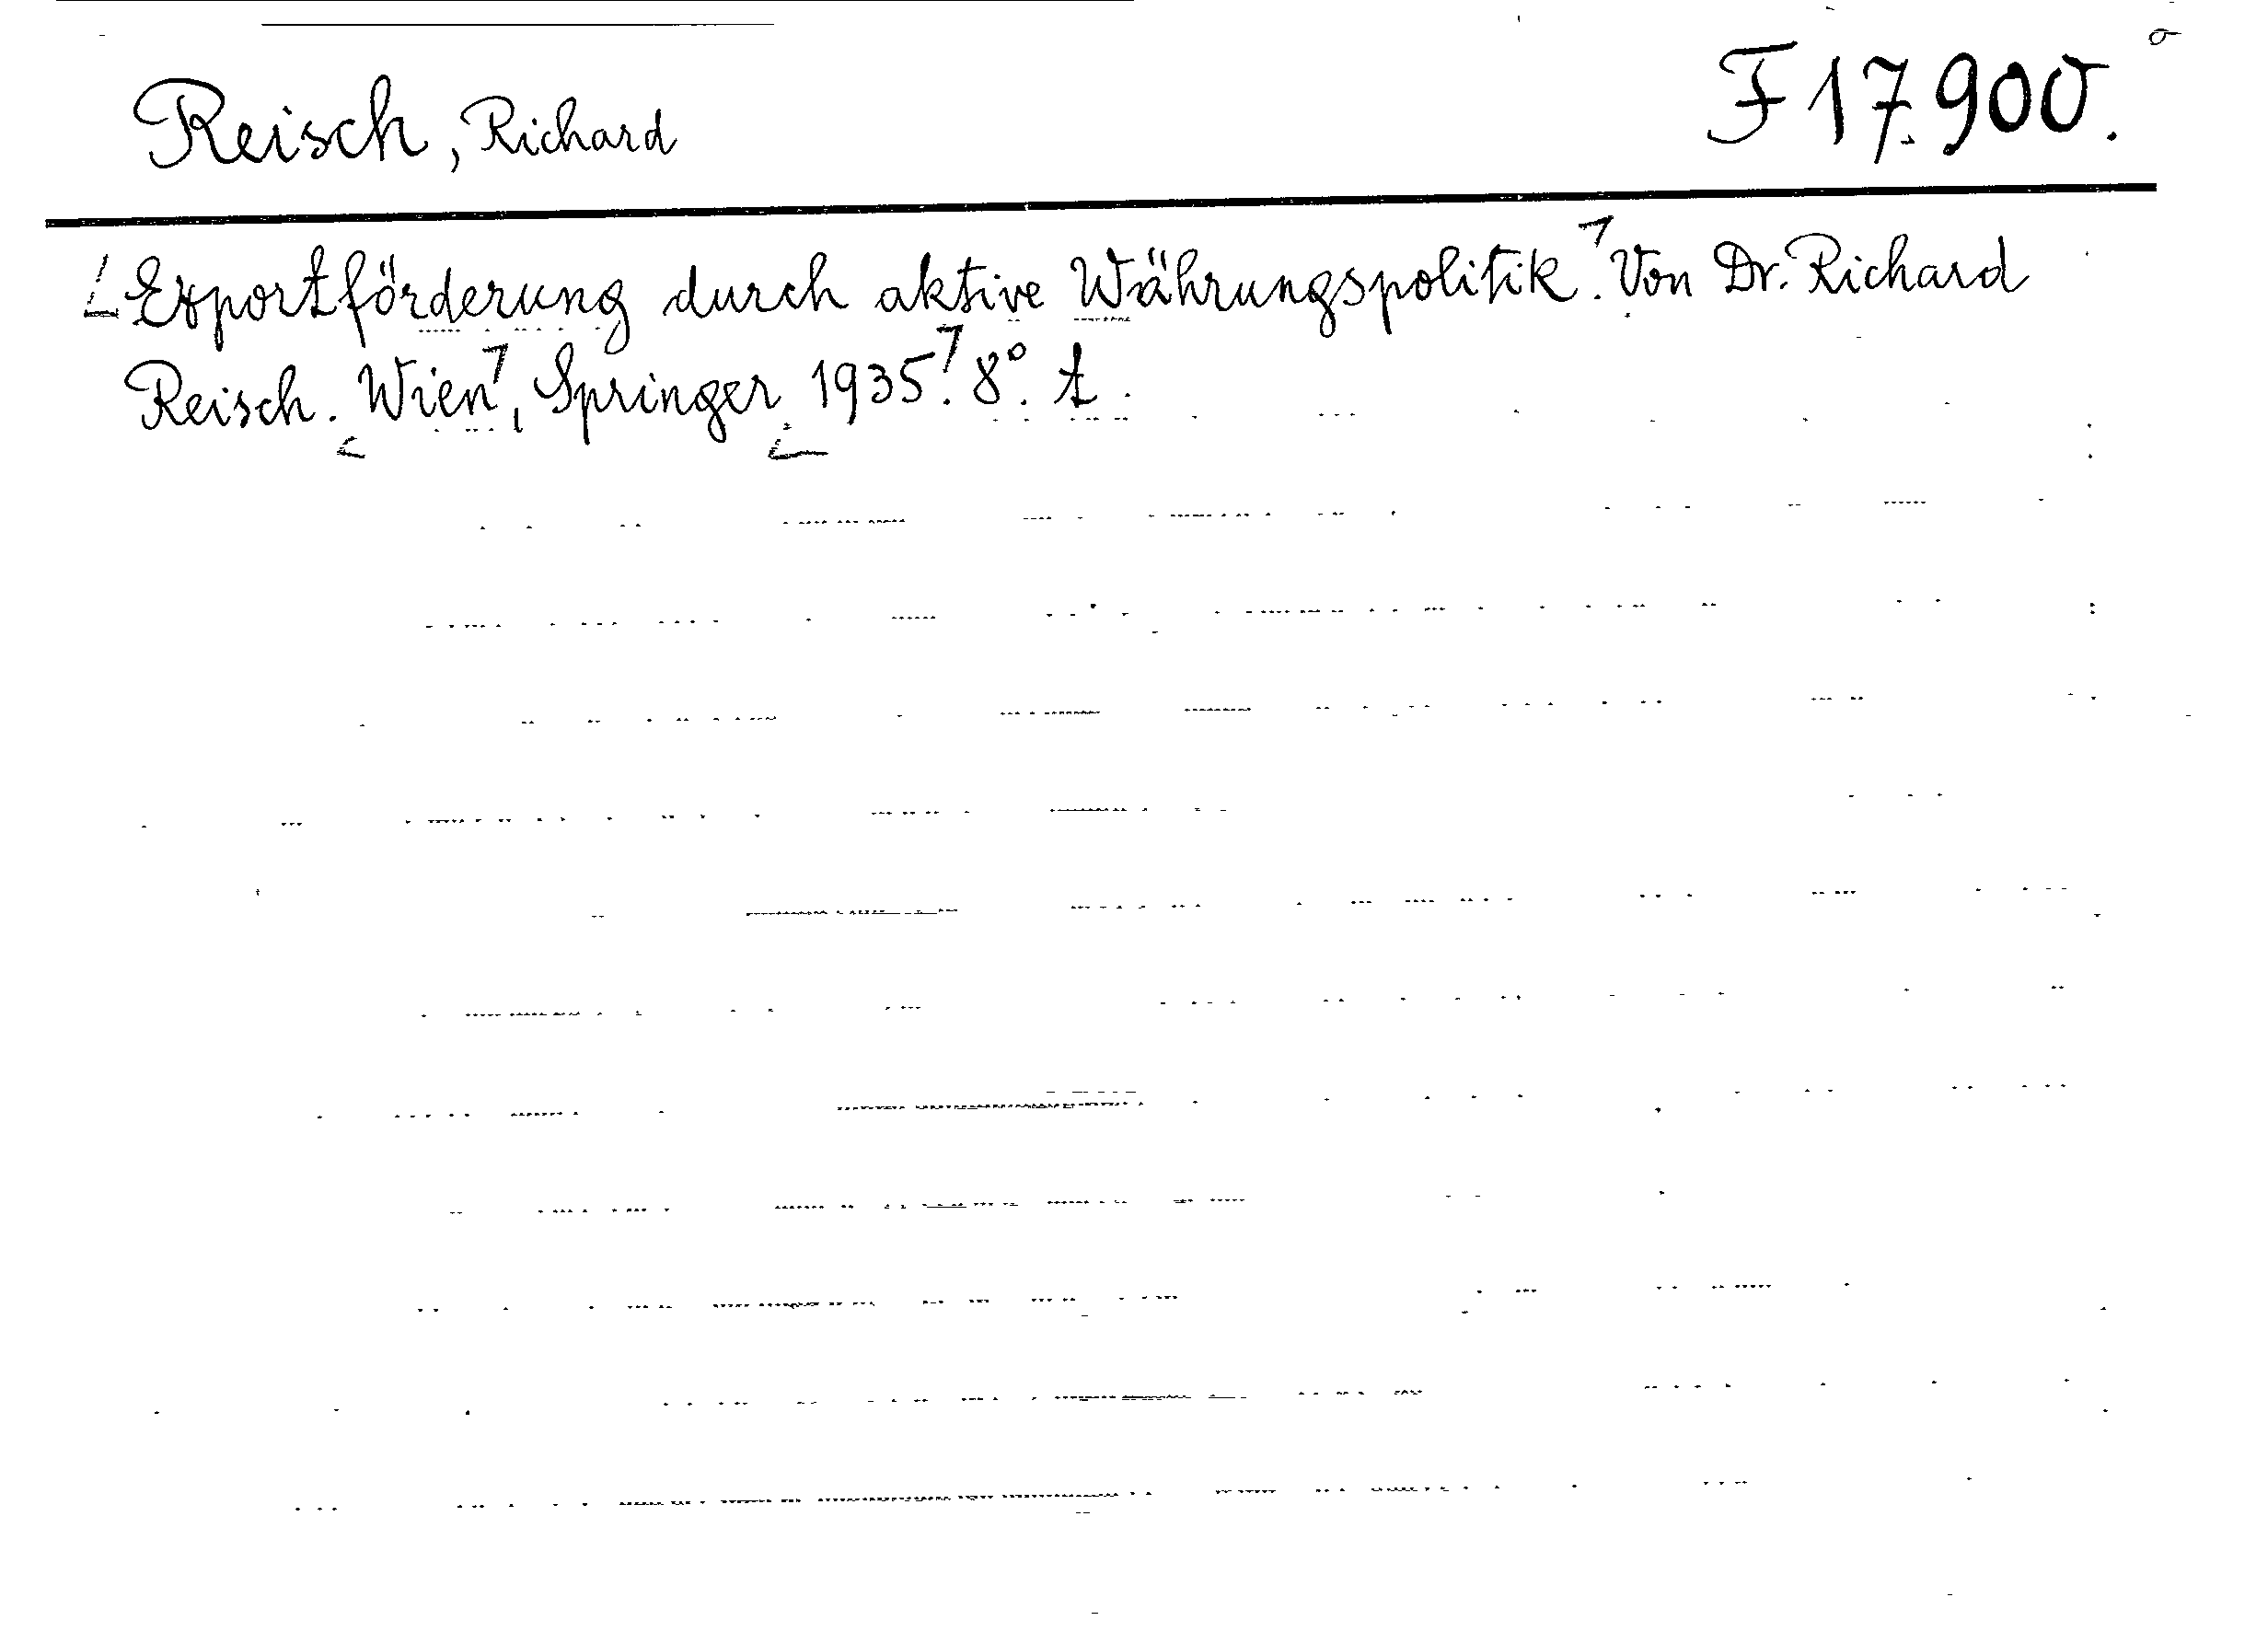 Reisch, Richard
F 17.900.
Exportförderung durch aktive Währungspolitik. Von Dr. Richard
Reisch. Wien, Springer 1935. 8°. t.